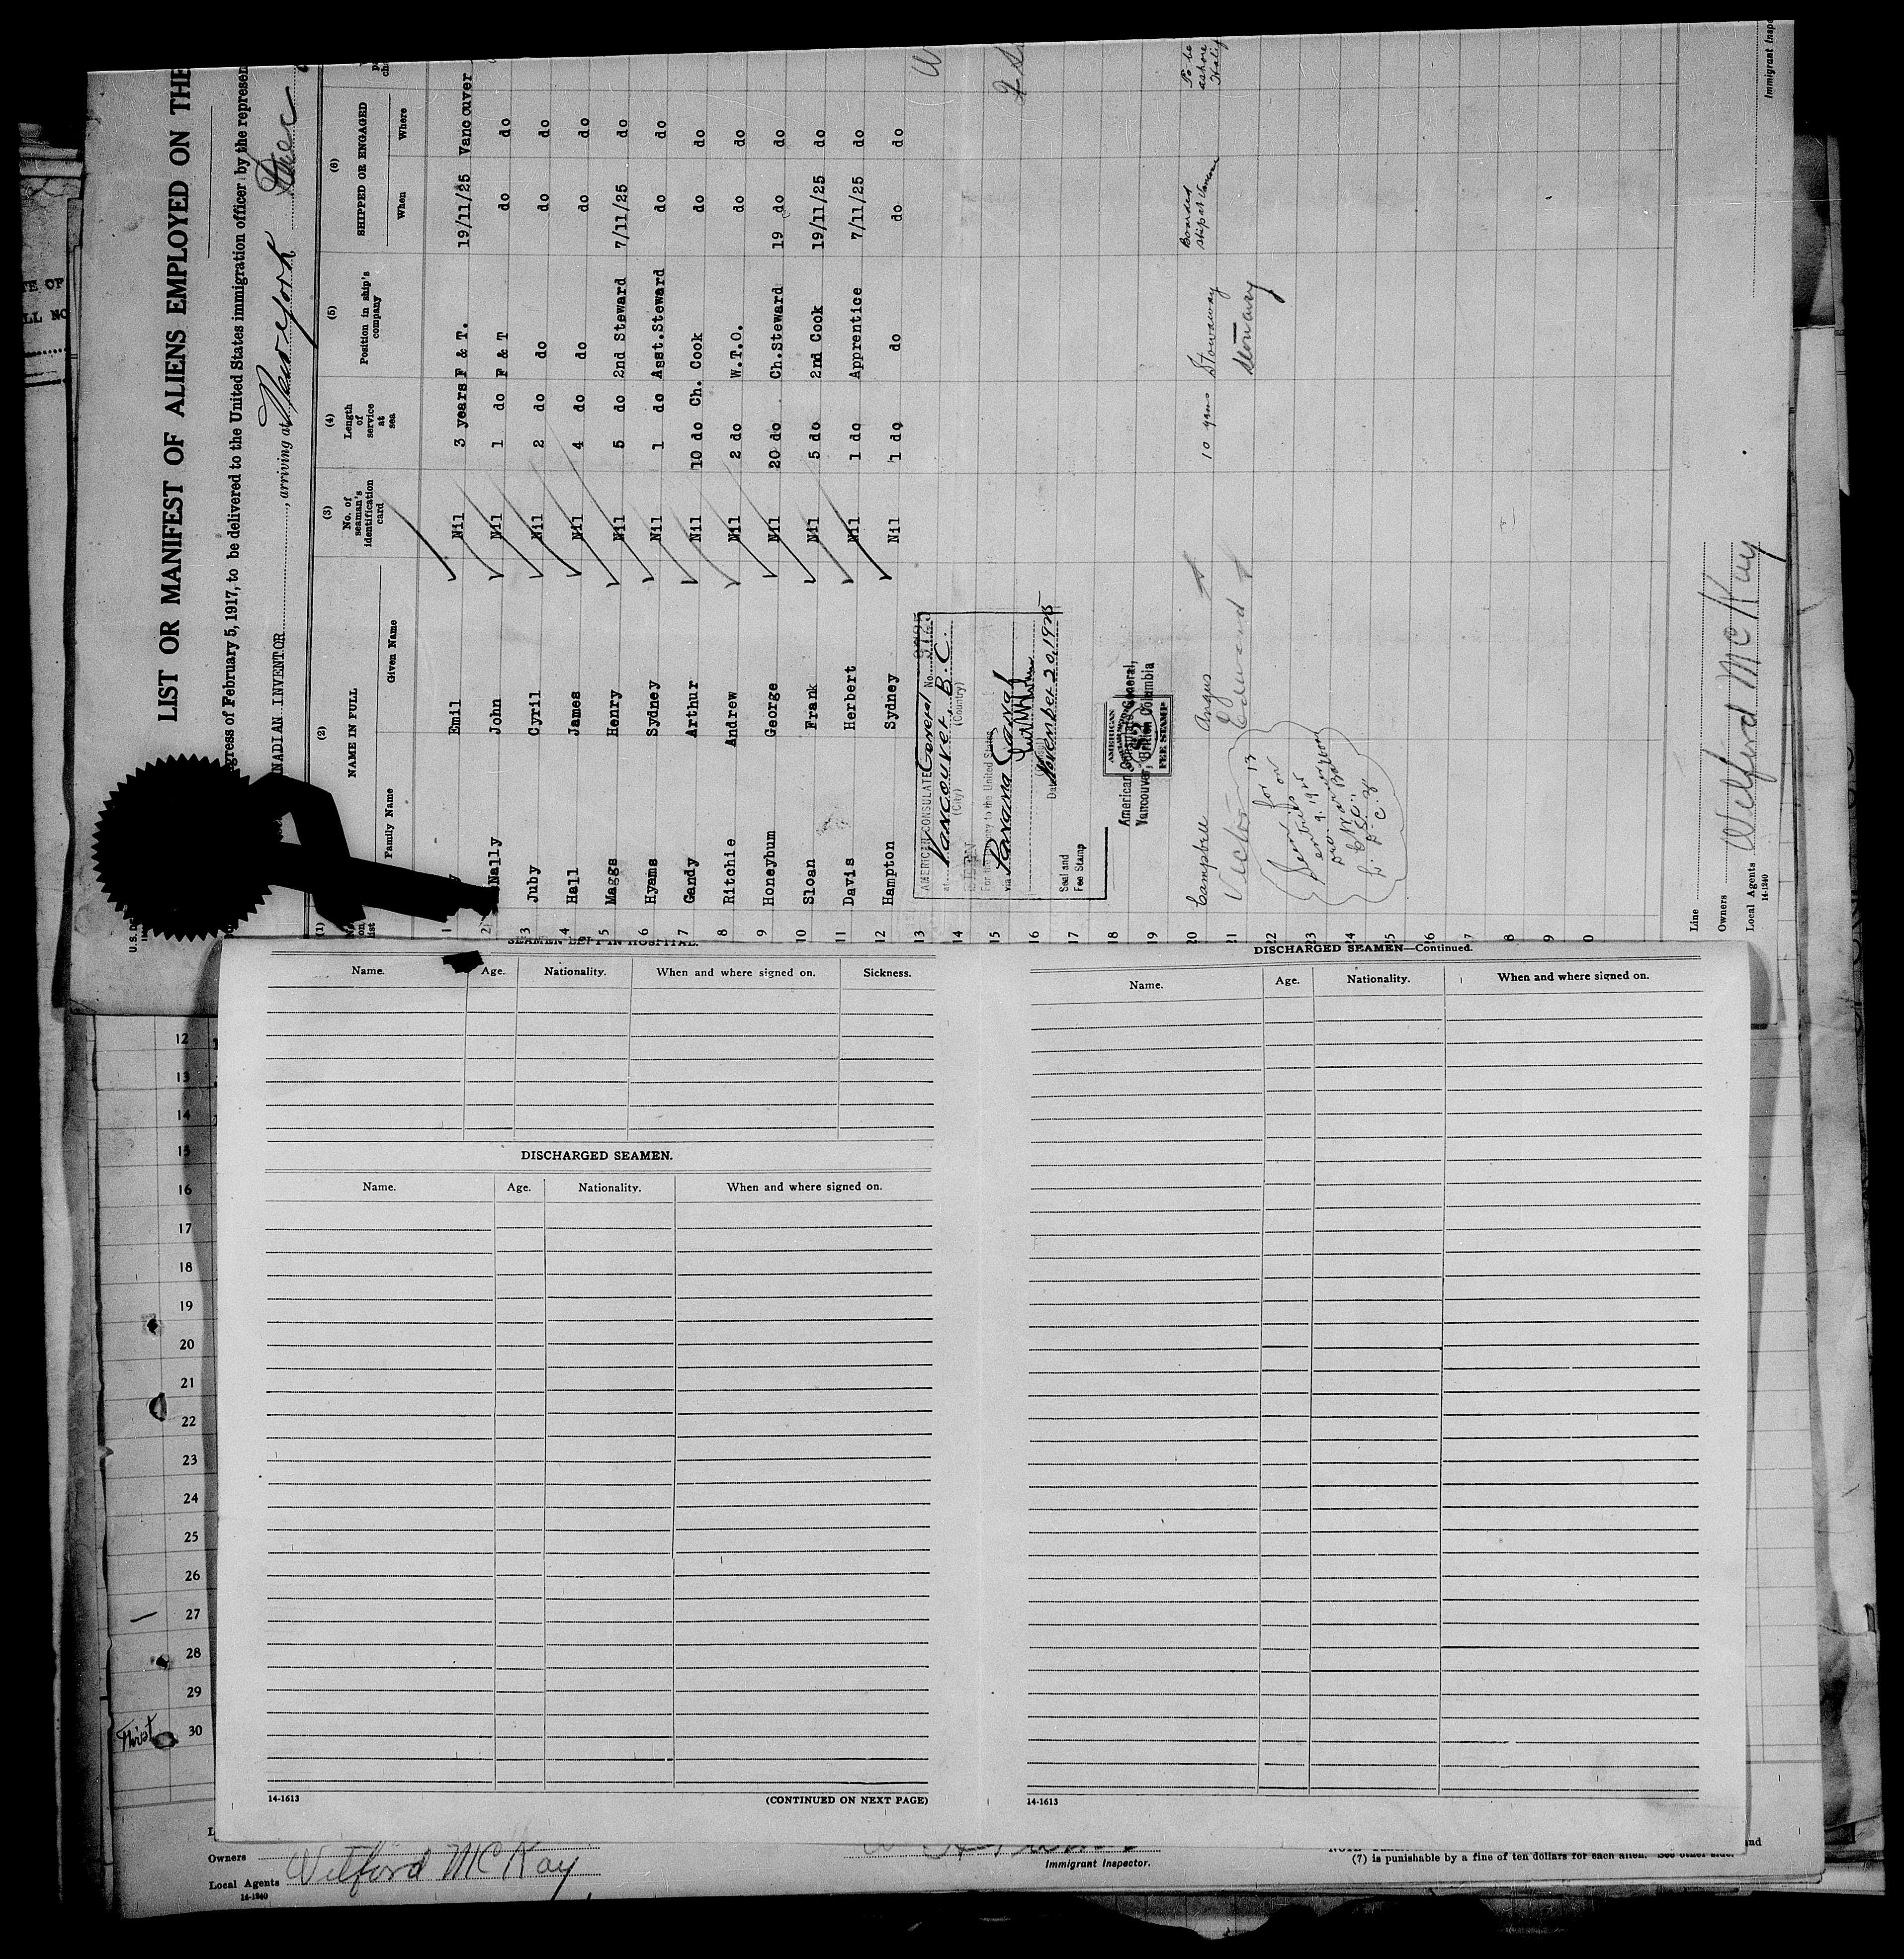 LIST OR MANIFEST OF ALIENS EMPLOYED ON THE
gress of February 5, 1917, to be delivered to the United States immigration officer by the represen
NADIAN INVENTOR, arriving at New York Dec
(1) (2) (3) (4) (5) (6)
NAME IN FULL
No. of seaman's identification card
Length of service at sea
Position in ship's company
SHIPPED OR ENGAGED
Family Name Given Name When Where
1 Emil Nil 3 years F & T. 19/11/25 Vancouver
2 Nally John Nil 1 do F & T do do
3 Juby Cyril Nil 2 do do do do
4 Hall James Nil 4 do do do do
5 Maggs Henry Nil 5 do 2nd Steward 7/11/25 do
6 Hyams Sydney Nil 1 do Asst.Steward do do
7 Gandy Arthur Nil 10 do Ch. Cook do do
8 Ritchie Andrew Nil 2 do W.T.O. do do
9 Honeybun George Nil 20 do Ch.Steward 19 do do
10 Sloan Frank Nil 5 do 2nd Cook 19/11/25 do
11 Davis Herbert Nil 1 do Apprentice 7/11/25 do
12 Hampton Sydney Nil 1 do do do do
13
14
15
16
17
18
19
AMERICAN CONSULATE General No.
at Vancouver, B.C.
(City) (Country)
For the journey to the United States
via Panama Canal
Date November 20, 1925
Seal and
Fee Stamp
AMERICAN
FEE STAMP
American Consulate General,
Vancouver, British Columbia
20 Campbell Angus 10 yrs Stowaway Boarded ship at To be ashore
21 Victor Edward Stowaway
22
23
24
25
6
7
8
9
0
Line
Owners
Local Agents Welford McKay
14-1240
Immigrant Insp
SEAMEN LEFT IN HOSPITAL.
Name. Age. Nationality. When and where signed on. Sickness.
DISCHARGED SEAMEN.
Name. Age. Nationality. When and where signed on.
14-1613 (CONTINUED ON NEXT PAGE)
DISCHARGED SEAMEN—Continued.
Name. Age. Nationality. When and where signed on.
14-1613
12
13
14
15
16
17
18
19
20
21
22
23
24
25
26
27
28
29
30
Owners
Local Agents Welford McKay
14-1240
Immigrant Inspector.
(7) is punishable by a fine of ten dollars for each alien. See other side.